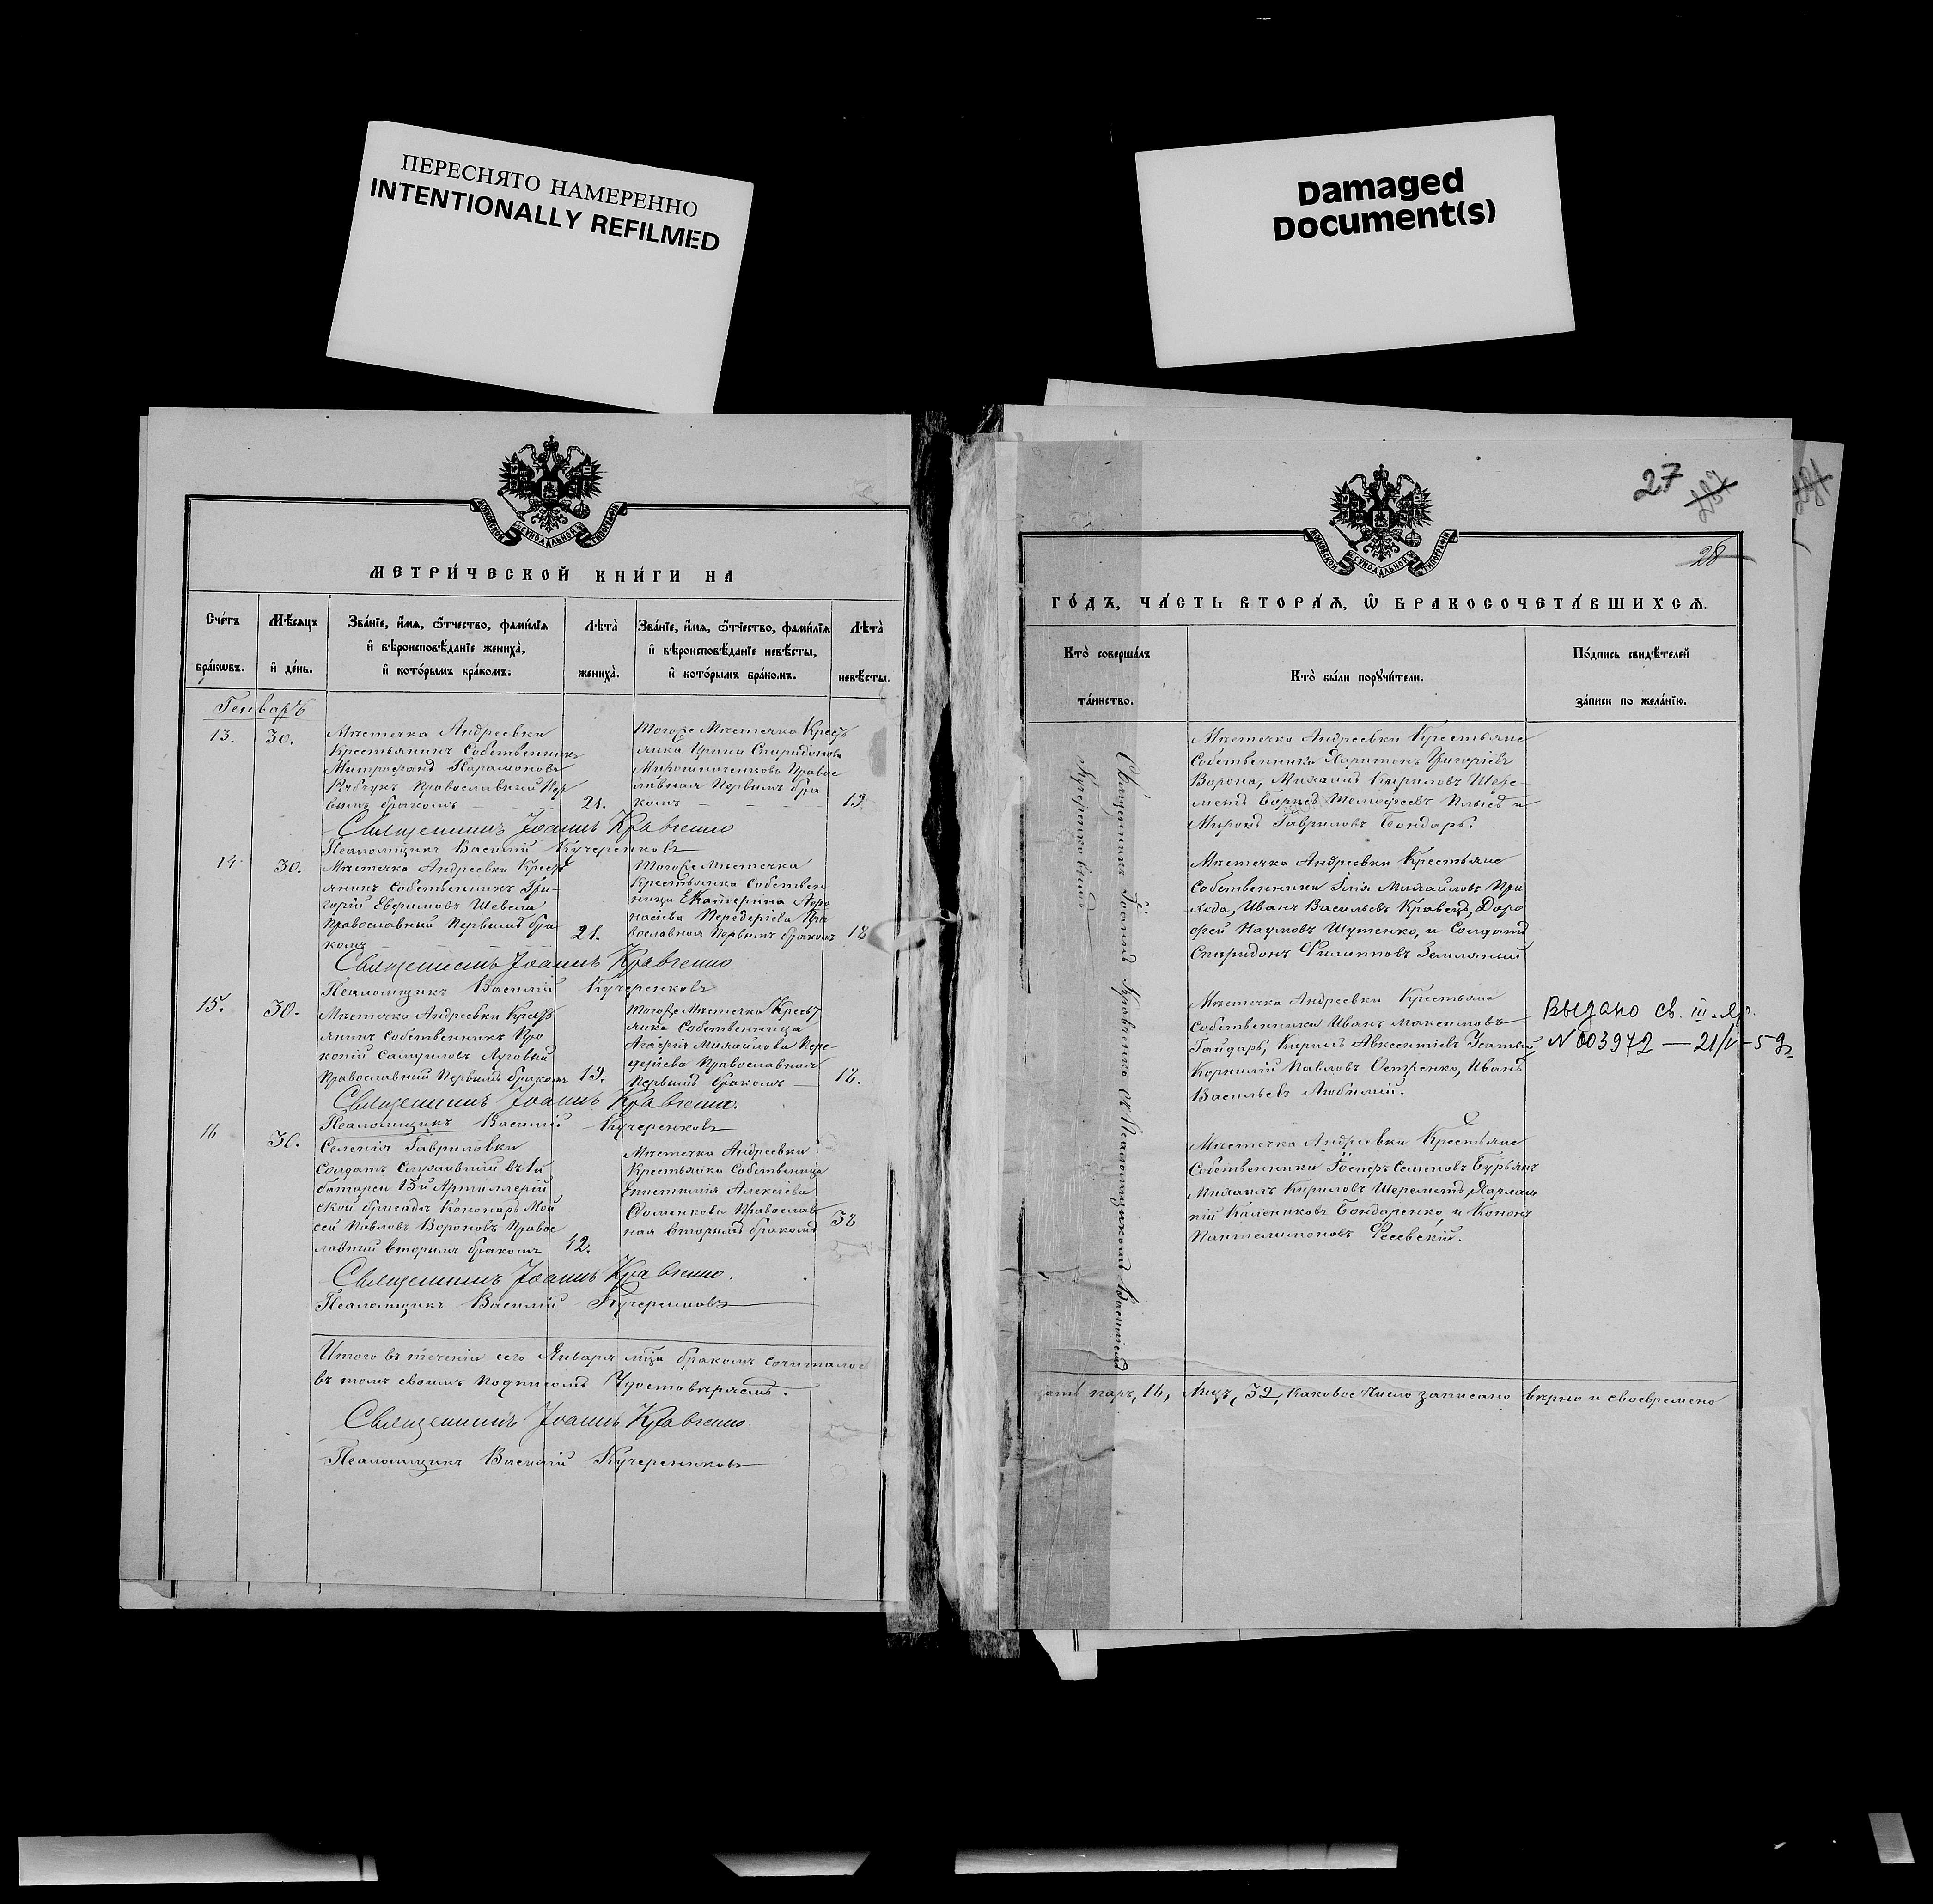 ПЕРЕСНЯТО НАМЕРЕННО
INTENTIONALLY REFILMED
Damaged
Document(s)
МОСКОВСКОЙ СѴНОДАЛЬНОЙ ТИПОГРАФІИ
МЕТРИ́ЧЕСКОЙ КНИ́ГИ НА
Сче́тъ
бра́кѡвъ.
Мѣ́сяцъ
и҆ де́нь.
Зва́нїе, и҆́мѧ, ѻ҆́тчество, фами́лїѧ
и҆ вѣроисповѣ́данїе жениха̀,
и҆ кото́рымъ бра́комъ.
Лѣта̀
жениха̀.
Зва́нїе, и҆́мѧ, ѻ҆́тчество, фами́лїѧ
и҆ вѣроисповѣ́данїе невѣ́сты,
и҆ кото́рымъ бра́комъ.
Лѣта̀
невѣ́сты.
Генварь
13.
30.
Мѣстечка Андреевки
Крестьянинъ Собственникъ
Митрофанъ Парамоновъ
Рябчукъ Православный Пер
вымъ бракомъ
21.
Тогоже Мѣстечка Кресть
янка Ирина Спиридонова
Мирошниченкова Правос
лавная Первымъ бра
комъ
19
Священникъ Іоаннъ Кравченко
Псаломщикъ Василій Кучеренковъ
14
30.
Мѣстечка Андреевки Кресть
янинъ Собственникъ Гри-
горій Евфимовъ Шевела
Православный Первымъ бра
комъ
21.
Тогоже Мѣстечка
Крестьянка Собствен
ница Екатерина Афо
насіева Передеріева Пра
вославная Первымъ бракомъ
18
Священникъ Іоаннъ Кравченко
Псаломщикъ Василій Кучеренковъ
15.
30.
Мѣстечка Андреевки Кресть
янинъ Собственникъ Про
копій Самуиловъ Луговый
Православный Первымъ бракомъ
19.
Тогоже Мѣстечка Кресть
янка Собственница
Агафія Михайлова Пере-
деріева Православная
Первымъ бракомъ
18.
Священникъ Іоаннъ Кравченко.
Псаломщикъ Василій Кучеренковъ
16
30.
Селенія Гавриловки
Солдатъ Служившій въ 1й
батареи 13й Артиллерій
ской бригады Кононарь Мой
сей Павловъ Вороновъ Правос
лавный вторымъ бракомъ
42.
Мѣстечка Андреевки
Крестьянка Собственница
Епистимія Алексіева
Фоменкова Православ
ная вторымъ бракомъ
38
Священникъ Іоаннъ Кравченко.
Псаломщикъ Василій Кучеренковъ
Итого въ теченіи сего Января мца бракомъ сочиталос
въ томъ своимъ подписомъ Удостовѣряемъ.
Священникъ Іоаннъ Кравченко.
Псаломщикъ Василій Кучеренковъ
27
237
28
МОСКОВСКОЙ СѴНОДАЛЬНОЙ ТИПОГРАФІИ
ГО́ДЪ, ЧА́СТЬ ВТОРА́Ѧ, Ѡ҆ БРАКОСОЧЕТА́ВШИХСѦ.
Кто̀ соверша́лъ
та́инство.
Кто̀ бы́ли порꙋчи́тели.
По́дпись свидѣ́телей
за́писи по жела́нїю.
Священникъ Іоаннъ Кравченко съ Псаломщикомъ Василіемъ
Кучеренко
Мѣстечка Андреевки Крестьяне
Собственники Харитонъ Григоріевъ
Ворона, Михаилъ Кириловъ Шере-
метъ Борисъ Тимофеевъ и
Миронъ Гавриловъ Бондарь.
Мѣстечка Андреевки Крестьяне
Собственники Илія Михайловъ При
хода, Иванъ Васильевъ Кравецъ, Доро
фей Наумовъ Шутенко, и Солдатъ
Спиридонъ Филипповъ Земляный
Мѣстечка Андреевки Крестьяне
Собственники Иванъ Максимовъ
Гайдарь, Кирилъ Авксентіевъ
Корнилій Павловъ Остренко, Иванъ
Васильевъ Любимій.
Выдано св. III.
№ 003972 — 21/V – 59
Мѣстечка Андреевки Крестьяне
Собственники Іосифъ Семеновъ Бурьянъ
Михаилъ Кириловъ Шереметъ, Харлам
пій Калениковъ Бондаренко, и Кононъ
Пантелимоновъ Фесевскій.
паръ, 16, Лицъ, 32, Каковое Число записано вѣрно и своевремено